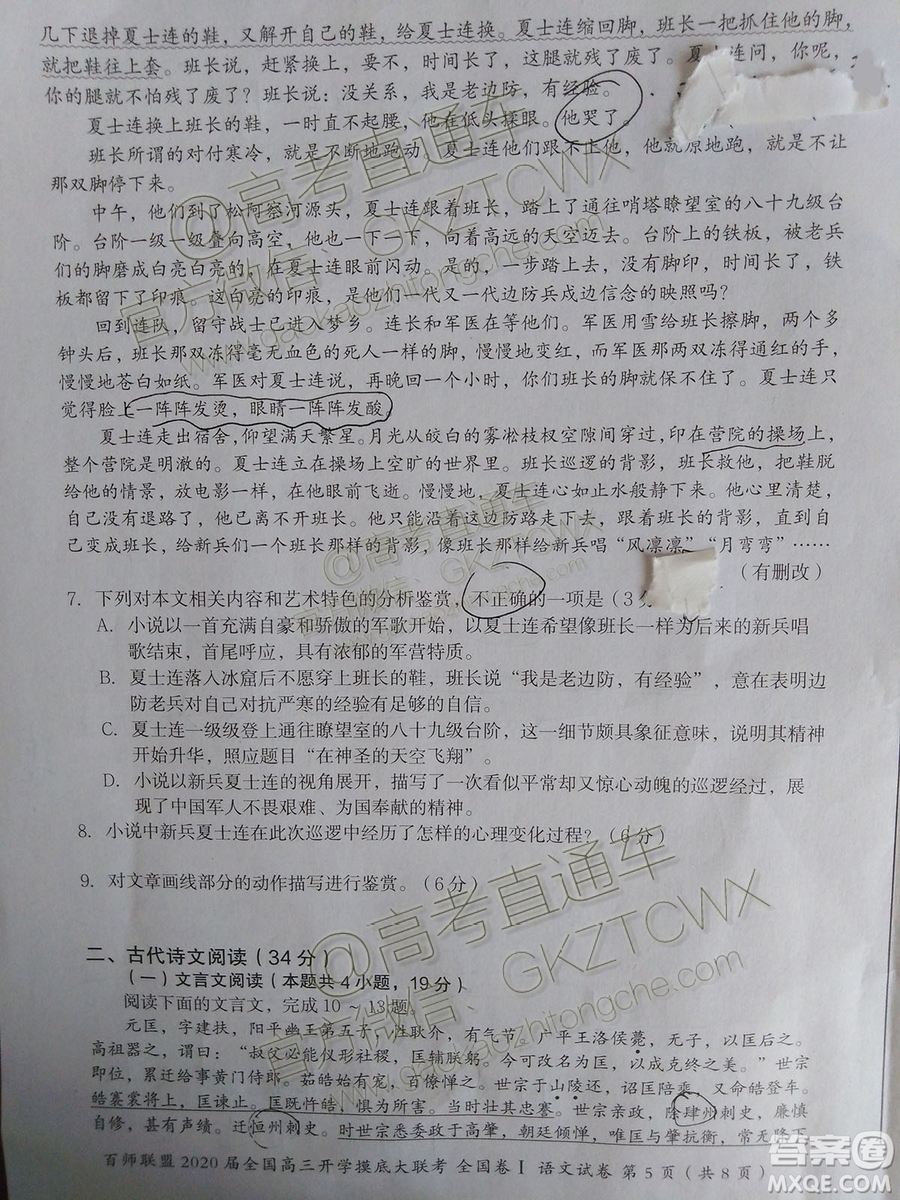 几下退掉夏士连的鞋，又解开自己的鞋，给夏士连换。夏士连缩回脚，班长一把抓住他的脚，
就把鞋往上套。班长说，赶紧换上，要不，时间长了，这腿就残了废了。夏士连问，你呢，
你的腿就不怕残了废了？班长说：没关系，我是老边防，有经验。
夏士连换上班长的鞋，一时直不起腰，他在低头揉眼。他哭了。
班长所谓的对付寒冷，就是不断地跑动。夏士连他们跟不上他，他就原地跑，就是不让
那双脚停下来。
中午，他们到了松阿察河源头，夏士连跟着班长，踏上了通往哨塔瞭望室的八十九级台
阶。台阶一级一级叠向高空，他也一下一下，向着高远的天空迈去。台阶上的铁板，被老兵
们的脚磨成白亮白亮的，在夏士连眼前闪动。是的，一步踏上去，没有脚印，时间长了，铁
板都留下了印痕。这白亮的印痕，是他们一代又一代边防兵戍边信念的映照吗？
回到连队，留守战士已进入了梦乡。连长和军医在等他们。军医用雪给班长擦脚，两个多
钟头后，班长那双冻得毫无血色的死人一样的脚，慢慢地变红，而军医那两双冻得通红的手，
慢慢地苍白如纸。军医对夏士连说，再晚回一个小时，你们班长的脚就保不住了。夏士连只
觉得脸上一阵阵发烫，眼睛一阵阵发酸。
夏士连走出宿舍，仰望满天繁星。月光从皎白的雾凇枝杈空隙间穿过，印在营院的操场上，
整个营院是明澈的。夏士连立在操场上空旷的世界里。班长巡逻的背影，班长救他，把鞋脱
给他的情景，放电影一样，在他眼前飞逝。慢慢地，夏士连心如止水般静下来。他心里清楚，
自己没有退路了，他已离不开班长。他只能沿着这边防路走下去，跟着班长的背影，直到自
己变成班长，给新兵们一个班长的背影，像班长那样给新兵唱“风凛凛”“月弯弯”……
（有删改）
7. 下列对本文相关内容和艺术特色的分析鉴赏，不正确的一项是（3
A. 小说以一首充满自豪和骄傲的军歌开始，以夏士连希望像班长一样为后来的新兵唱
歌结束，首尾呼应，具有浓郁的军营特色。
B. 夏士连落入冰窟后不愿穿上班长的鞋，班长说“我是老边防，有经验”，意在表明边
防老兵对自己对抗严寒的经验有足够的自信。
C. 夏士连一级级登上通往瞭望室的八十九级台阶，这一细节颇具象征意味，说明其精神
开始升华，照应题目“在神圣的天空飞翔”
D. 小说以新兵夏士连的视角展开，描写了一次看似平常却又惊心动魄的巡逻经过，展
现了中国军人不畏艰难、为国奉献的精神。
8. 小说中新兵夏士连在此次巡逻中经历了怎样的心理变化过程？（6分）
9. 对文章画线部分的动作描写进行鉴赏。（6分）
二、古代诗文阅读（34分）
（一）文言文阅读（本题共4小题，19分）
阅读下面的文言文，完成10～13题。
元匡，字建扶，阳平幽王第五子，性耿介，有气节，广平王洛侯薨，无子，以匡后之。
高祖器之，谓曰：“叔父必能仪形社稷，匡辅朕躬。今可改名为匡，以成克终之美。”世宗
即位，累迁给事黄门侍郎。茹皓始有宠，百僚惮之。世宗于山陵还，诏匡陪乘，又命皓登车。
皓褰裳将上，匡谏止。匡既忤皓，惧为所害。当时壮其忠謇。世宗亲政，除肆州刺史，廉慎
自修，甚有声绩。迁恒州刺史。时世宗悉委政于高肇，朝廷倾惮，唯匡与肇抗衡，常无降下
百师联盟 2020 届全国高三开学摸底大联考 全国卷Ⅰ 语文试卷 第 5 页（共 8 页）
@高考直通车
官方微信：GKZTCWX
www.gaokaozhitongche.com
@高考直通车
官方微信：GKZTCWX
@高考直通车
官方微信：GKZTCWX
www.gaokaozhitongche.com
答案圈
MXQE.COM